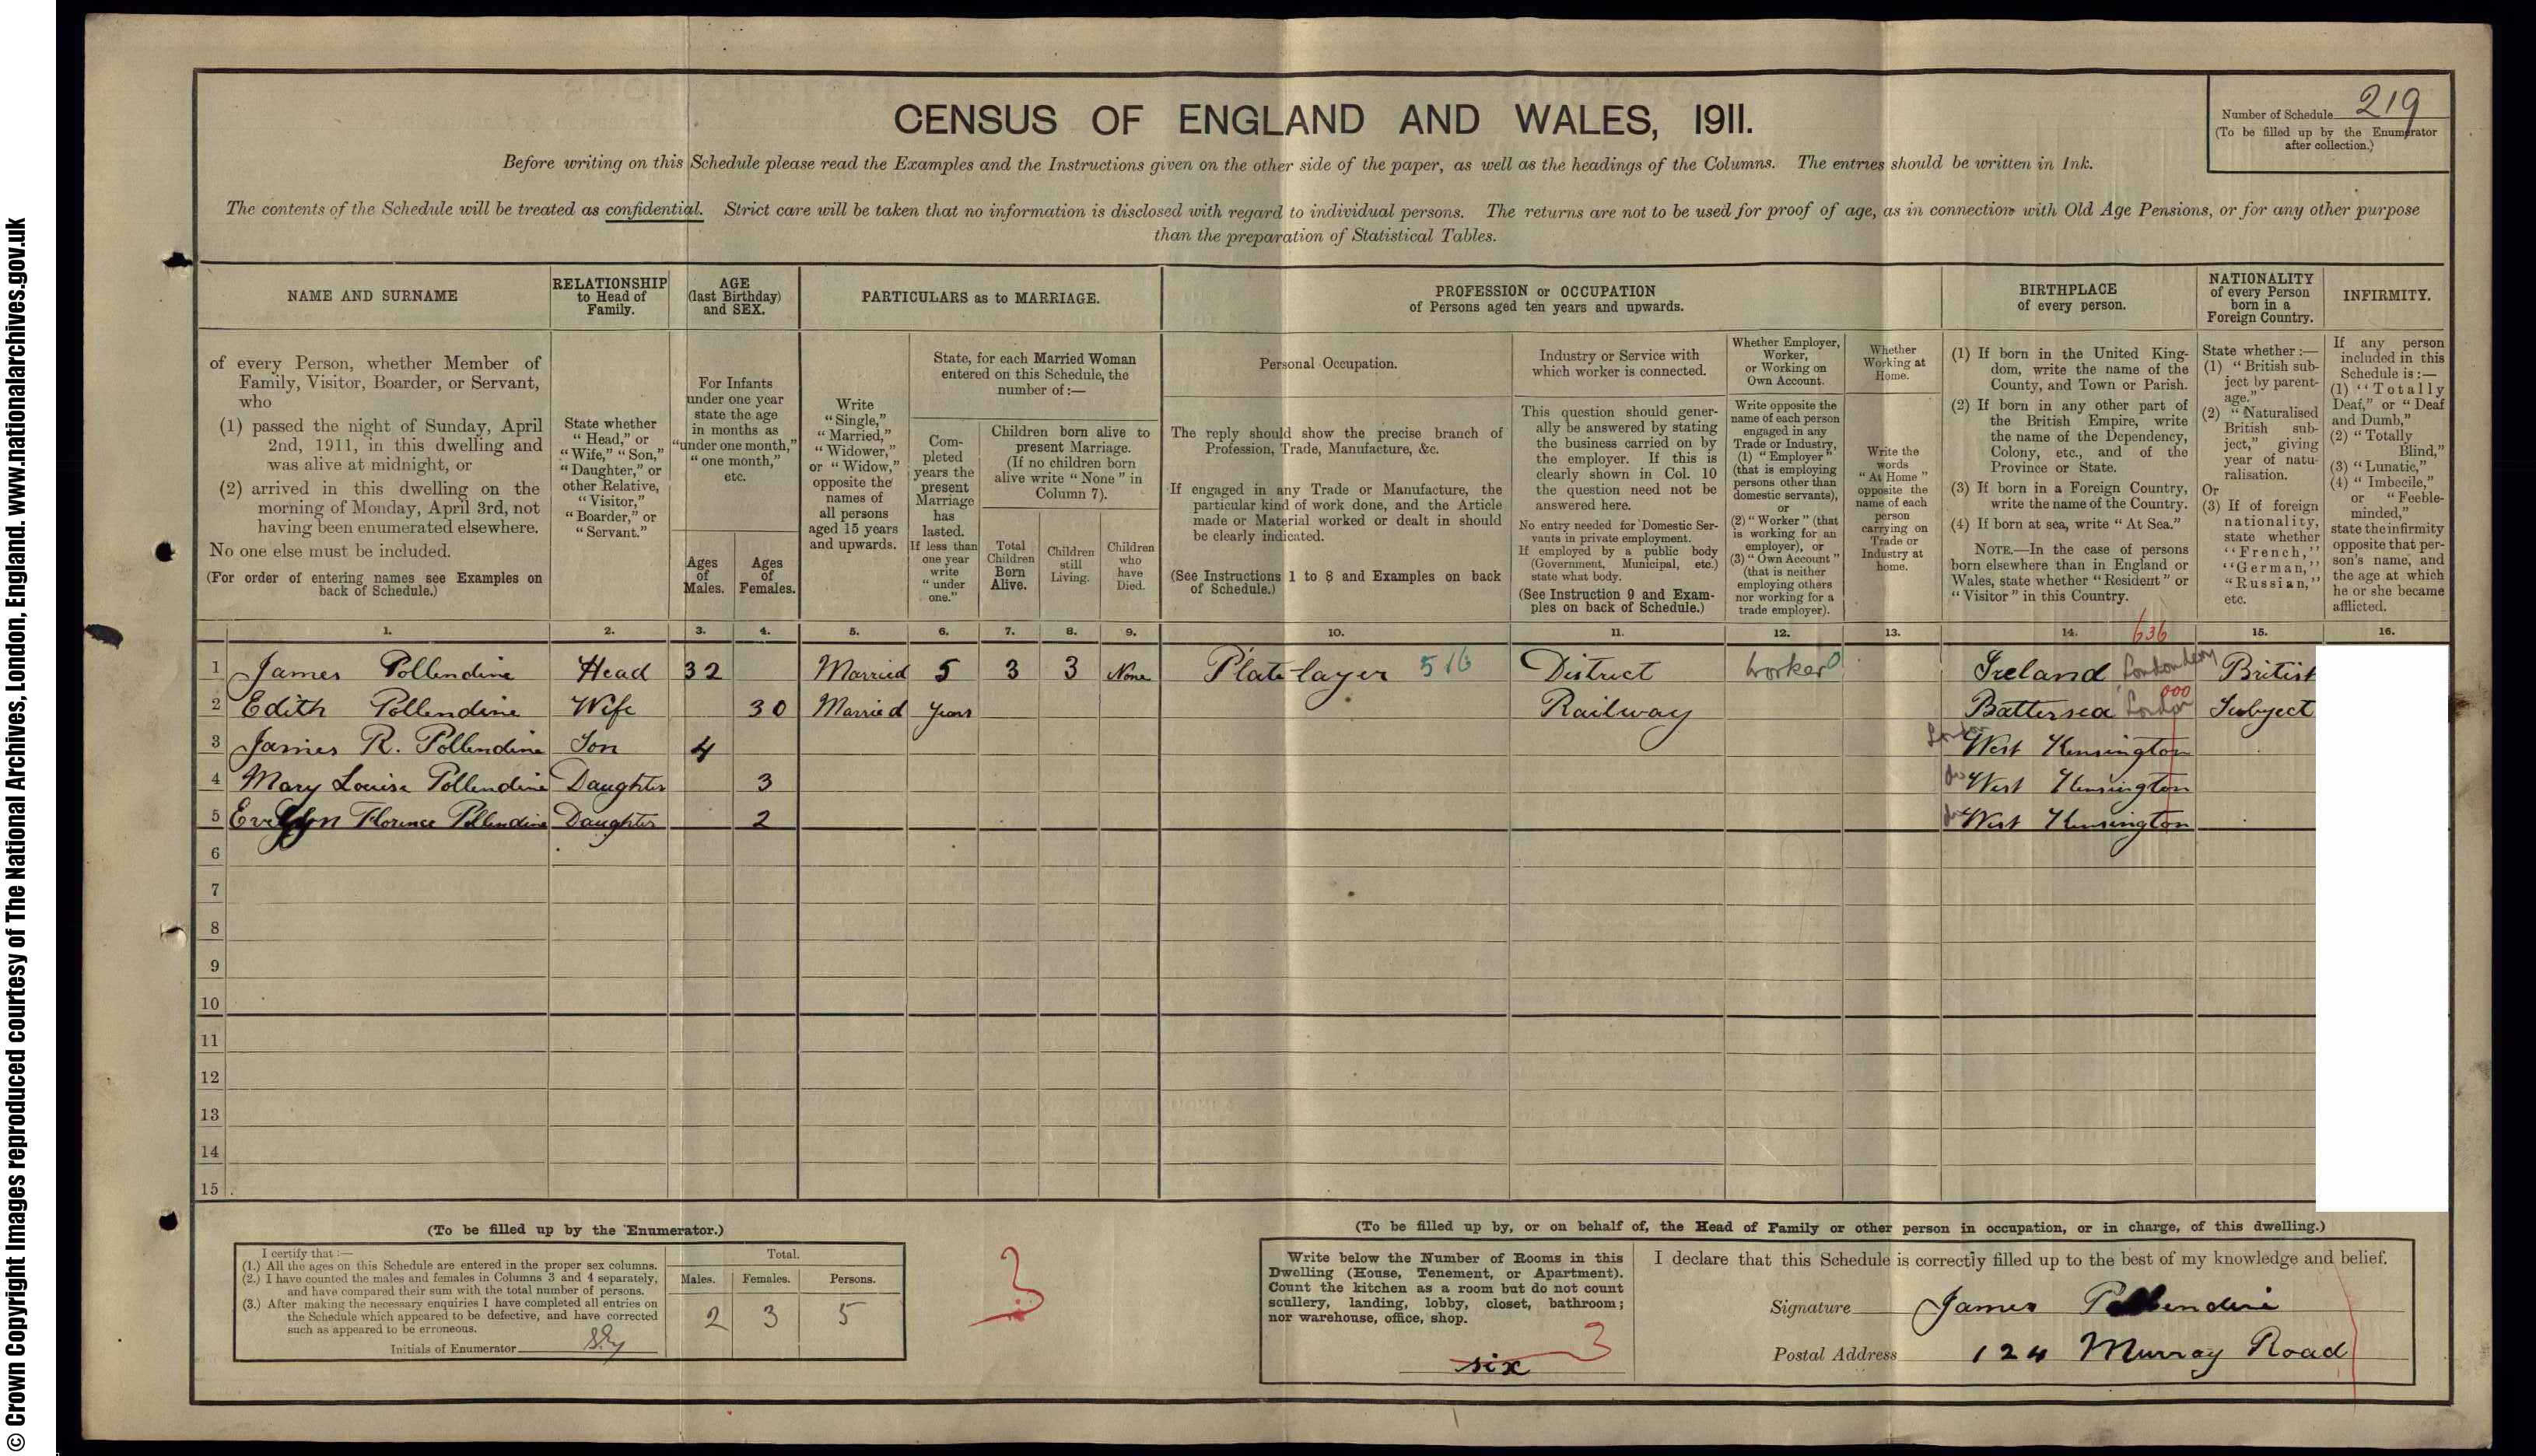 CENSUS OF ENGLAND AND WALES, 1911.
Number of Schedule 219
(To be filled up by the Enumerator
after collection.)
Before writing on this Schedule please read the Examples and the Instructions given on the other side of the paper, as well as the headings of the Columns. The entries should be written in Ink.
The contents of the Schedule will be treated as confidential. Strict care will be taken that no information is disclosed with regard to individual persons. The returns are not to be used for proof of age, as in connection with Old Age Pensions, or for any other purpose
than the preparation of Statistical Tables.
NAME AND SURNAME
of every Person, whether Member of
Family, Visitor, Boarder, or Servant,
who
(1) passed the night of Sunday, April
2nd, 1911, in this dwelling and
was alive at midnight, or
(2) arrived in this dwelling on the
morning of Monday, April 3rd, not
having been enumerated elsewhere.
No one else must be included.
(For order of entering names see Examples on
back of Schedule.)
RELATIONSHIP
to Head of
Family.
State whether
"Head," or
"Wife," "Son,"
"Daughter," or
other Relative,
"Visitor,"
"Boarder," or
"Servant."
AGE
(last Birthday)
and SEX.
For Infants
under one year
state the age
in months as
"under one month,"
"one month,"
etc.
Ages
of
Males.
Ages
of
Females.
PARTICULARS as to MARRIAGE.
Write
"Single,"
"Married,"
"Widower,"
or "Widow,"
opposite the
names of
all persons
aged 15 years
and upwards.
State, for each Married Woman
entered on this Schedule, the
number of :—
Com-
pleted
years the
present
Marriage
has
lasted.
If less than
one year
write
"under
one."
Children born alive to
present Marriage.
(If no children born
alive write "None" in
Column 7).
Total
Children
Born
Alive.
Children
still
Living.
Children
who
have
Died.
PROFESSION or OCCUPATION
of Persons aged ten years and upwards.
Personal Occupation.
The reply should show the precise branch of
Profession, Trade, Manufacture, &c.
If engaged in any Trade or Manufacture, the
particular kind of work done, and the Article
made or Material worked or dealt in should
be clearly indicated.
(See Instructions 1 to 8 and Examples on back
of Schedule.)
Industry or Service with
which worker is connected.
This question should gener-
ally be answered by stating
the business carried on by
the employer. If this is
clearly shown in Col. 10
the question need not be
answered here.
No entry needed for Domestic Ser-
vants in private employment.
If employed by a public body
(Government, Municipal, etc.)
state what body.
(See Instruction 9 and Exam-
ples on back of Schedule.)
Whether Employer,
Worker,
or Working on
Own Account.
Write opposite the
name of each person
engaged in any
Trade or Industry,
(1) "Employer"
(that is employing
persons other than
domestic servants),
or
(2) "Worker" (that
is working for an
employer), or
(3) "Own Account"
(that is neither
employing others
nor working for a
trade employer).
Whether
Working at
Home.
Write the
words
"At Home"
opposite the
name of each
person
carrying on
Trade or
Industry at
home.
BIRTHPLACE
of every person.
(1) If born in the United King-
dom, write the name of the
County, and Town or Parish.
(2) If born in any other part of
the British Empire, write
the name of the Dependency,
Colony, etc., and of the
Province or State.
(3) If born in a Foreign Country,
write the name of the Country.
(4) If born at sea, write "At Sea."
NOTE.—In the case of persons
born elsewhere than in England or
Wales, state whether "Resident" or
"Visitor" in this Country.
NATIONALITY
of every Person
born in a
Foreign Country.
State whether :—
(1) "British sub-
ject by parent-
age."
(2) "Naturalised
British sub-
ject," giving
year of natu-
ralisation.
Or
(3) If of foreign
nationality,
state whether
"French,"
"German,"
"Russian,"
etc.
INFIRMITY.
If any person
included in this
Schedule is :—
(1) "Totally
Deaf," or "Deaf
and Dumb,"
(2) "Totally
Blind,"
(3) "Lunatic,"
(4) "Imbecile,"
or "Feeble-
minded,"
state the infirmity
opposite that per-
son's name, and
the age at which
he or she became
afflicted.
1. 2. 3. 4. 5. 6. 7. 8. 9. 10. 11. 12. 13. 14. 636 15. 16.
1 James Pollendine Head 32 Married 5 3 3 None Platelayer 516 District Worker 0 Ireland Londonderry British
2 Edith Pollendine Wife 30 Married years Railway Battersea London 000 Subject
3 James R. Pollendine Son 4 London West Kensington
4 Mary Louisa Pollendine Daughter 3 do West Kensington
5 Evelyn Florence Pollendine Daughter 2 do West Kensington
6
7
8
9
10
11
12
13
14
15
(To be filled up by the Enumerator.)
I certify that :—
(1.) All the ages on this Schedule are entered in the proper sex columns.
(2.) I have counted the males and females in Columns 3 and 4 separately,
and have compared their sum with the total number of persons.
(3.) After making the necessary enquiries I have completed all entries on
the Schedule which appeared to be defective, and have corrected
such as appeared to be erroneous.
Initials of Enumerator
Total.
Males. Females. Persons.
2 3 5
3
(To be filled up by, or on behalf of, the Head of Family or other person in occupation, or in charge, of this dwelling.)
Write below the Number of Rooms in this
Dwelling (House, Tenement, or Apartment).
Count the kitchen as a room but do not count
scullery, landing, lobby, closet, bathroom;
nor warehouse, office, shop.
six 3
I declare that this Schedule is correctly filled up to the best of my knowledge and belief.
Signature James Pollendine
Postal Address 124 Murray Road
© Crown Copyright Images reproduced courtesy of The National Archives, London, England. www.nationalarchives.gov.uk